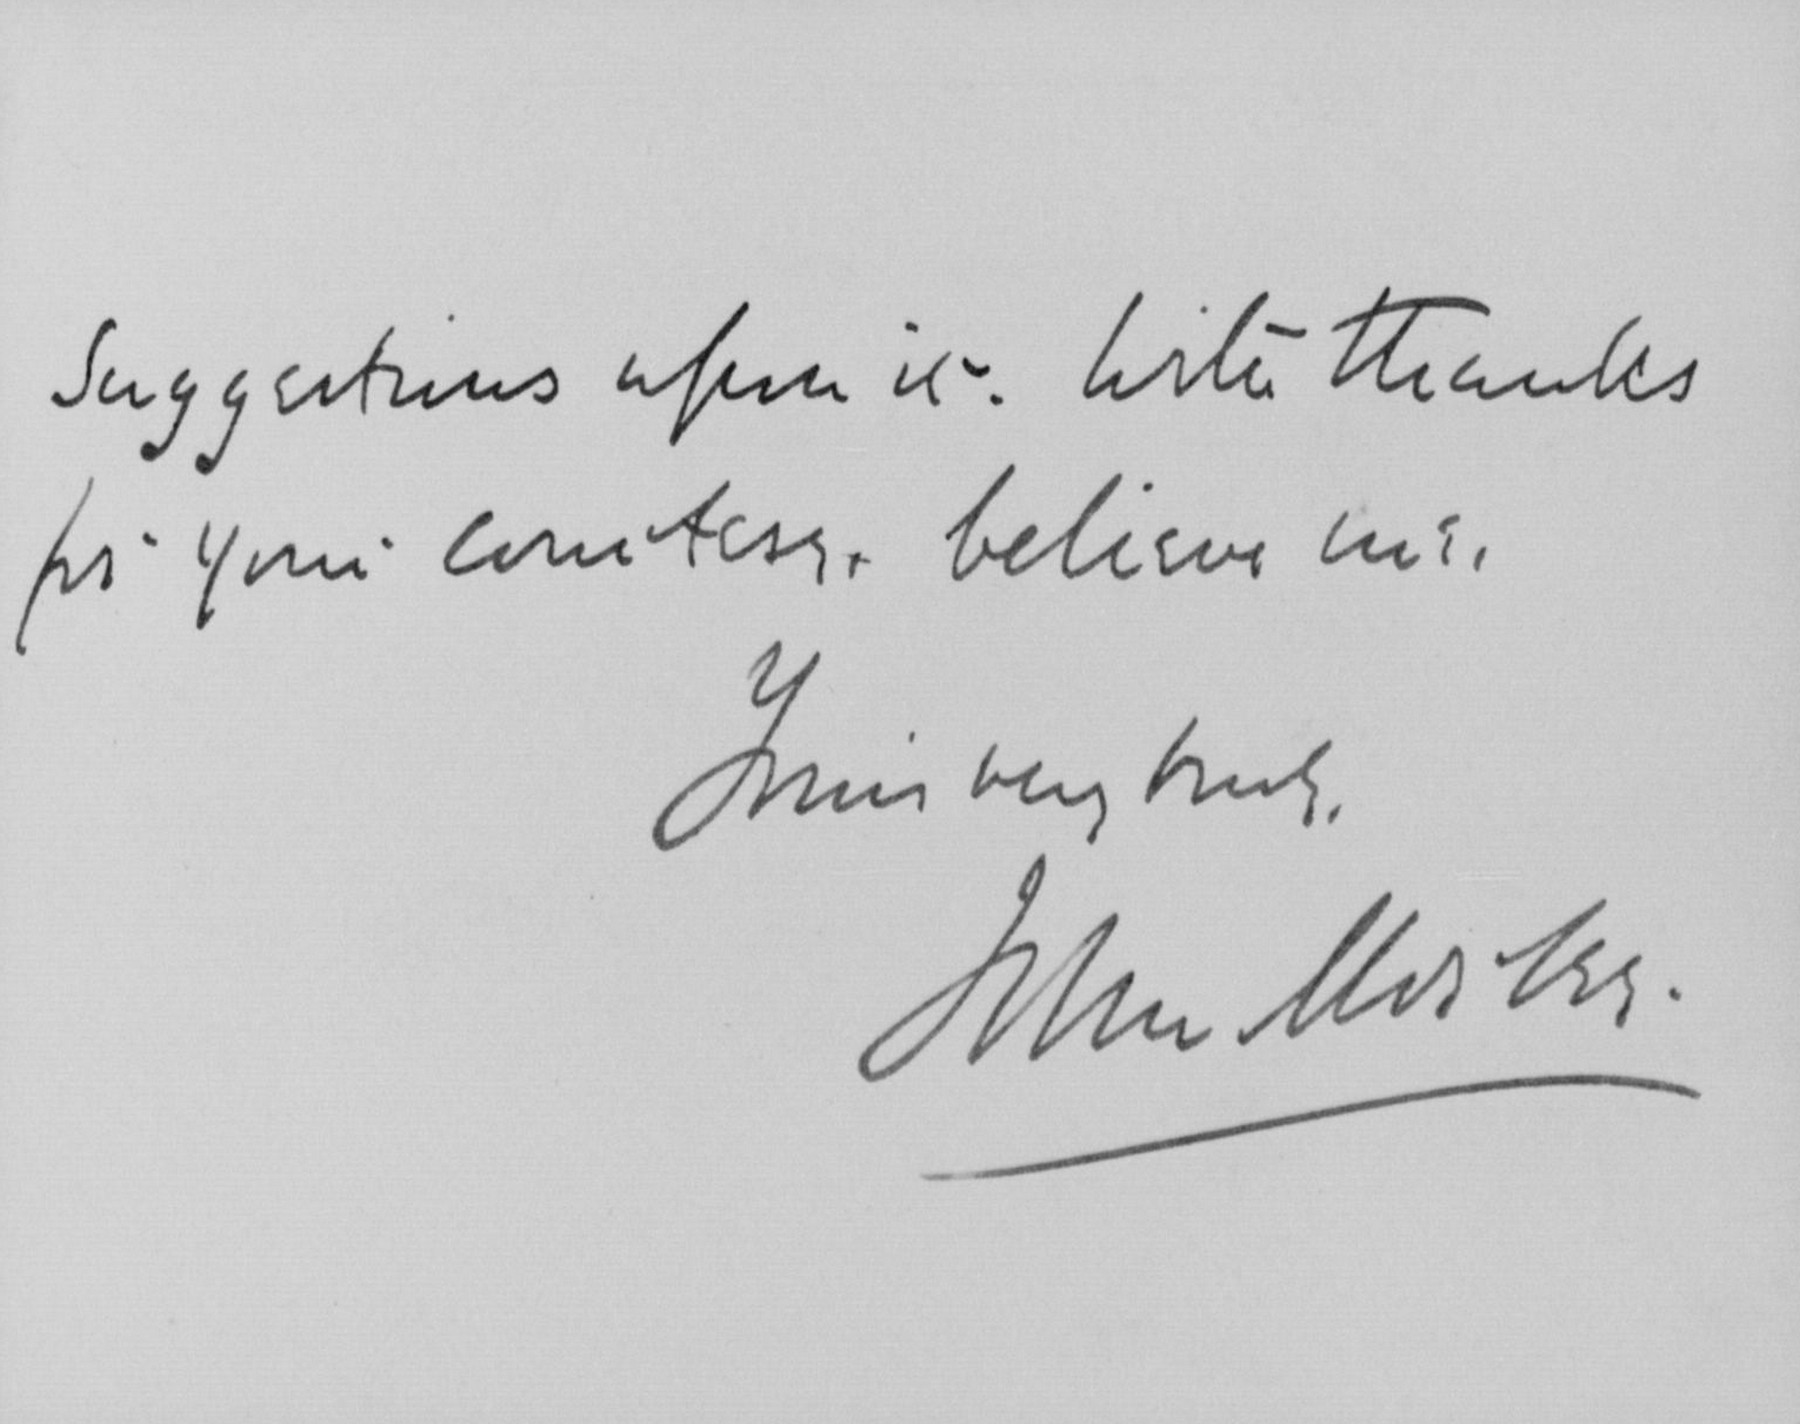 suggestions upon it. With thanks
for your courtesy, believe me,
Yours very truly,
John Morley.